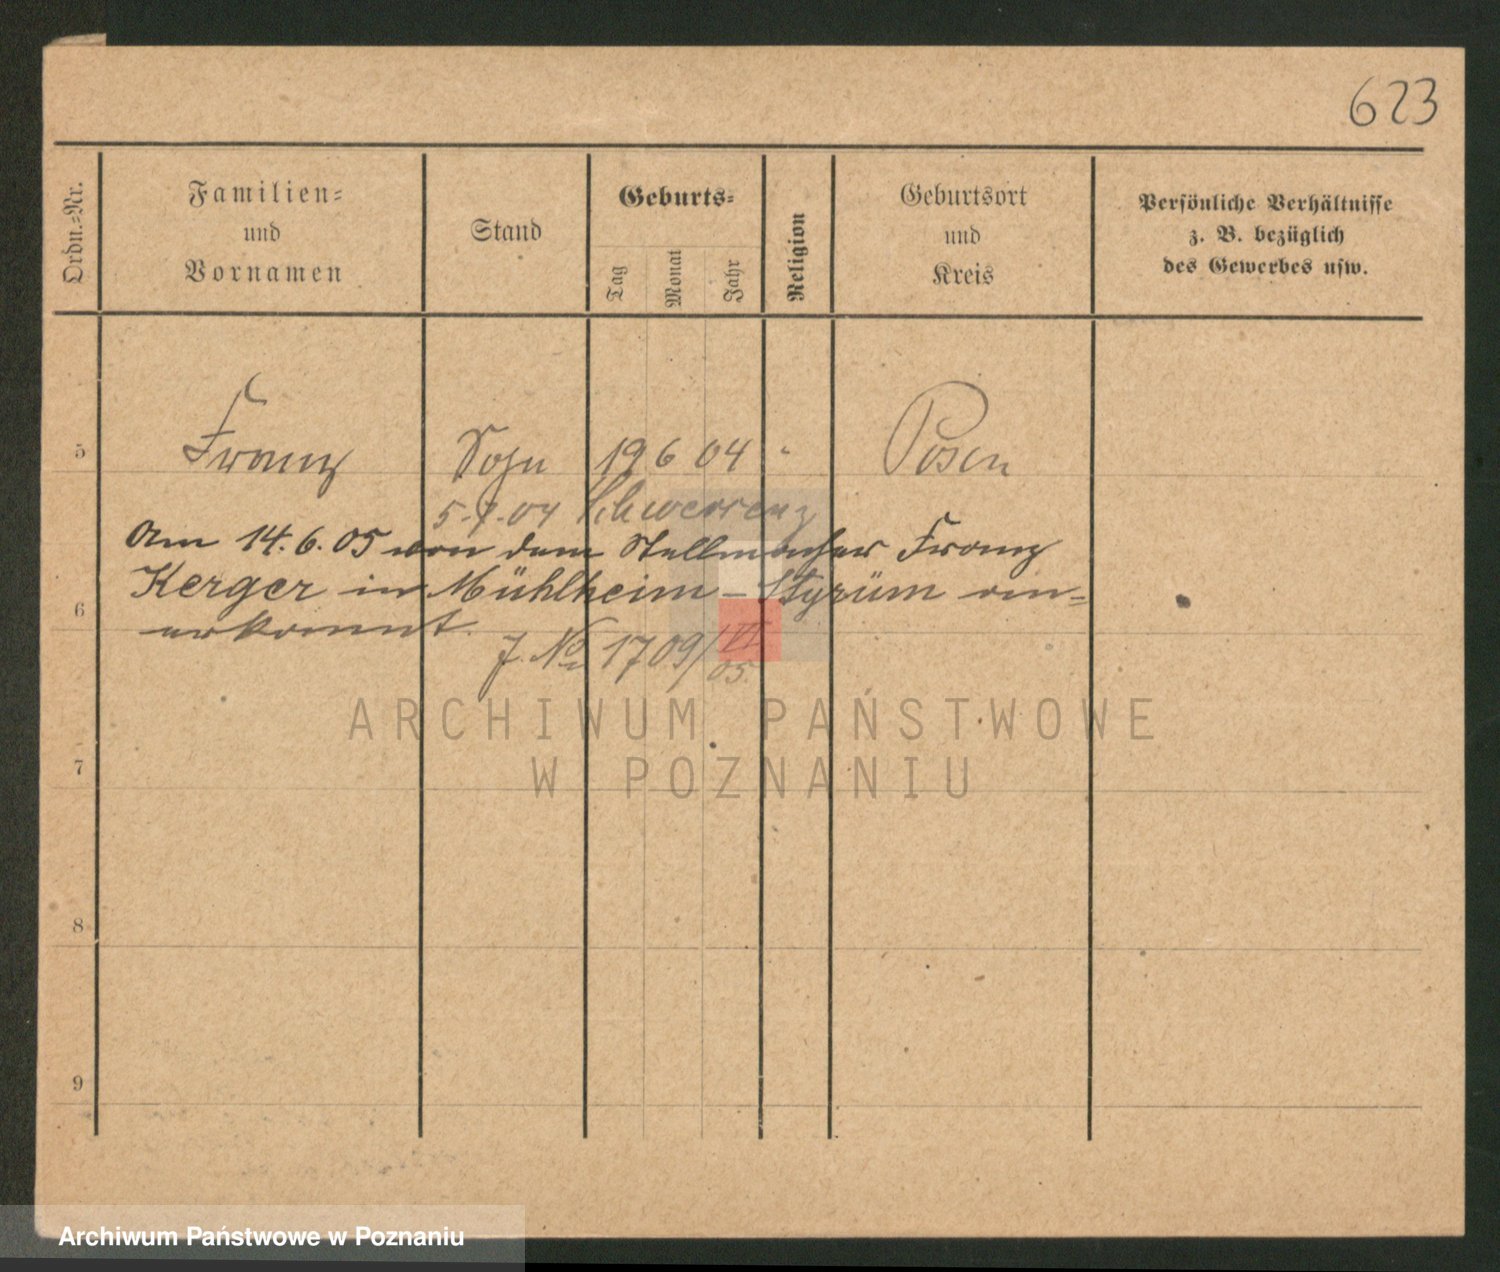 623
Ordn.-Nr.
Familien-
und
Vornamen
Stand
Geburts-
Tag
Monat
Jahr
Religion
Geburtsort
und
Kreis
Persönliche Verhältnisse
z. B. bezüglich
des Gewerbes usw.
5 Franz Sohn 19 6 04 " Posen
5. 7. 04 Schwersenz
Am 14. 6. 05 von dem Stellmacher Franz
6 Kerger in Mühlheim - Styrüm an=
erkannt.
J. No 1709/VI 05.
ARCHIWUM PAŃSTWOWE
W POZNANIU
7
8
9
Archiwum Państwowe w Poznaniu